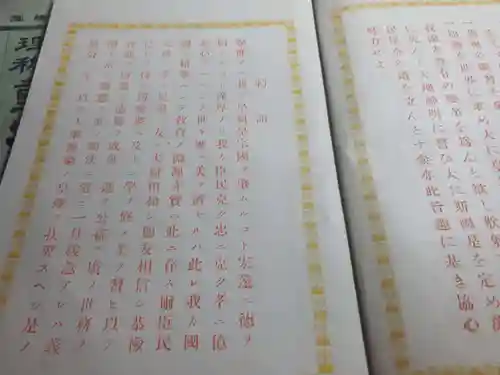 一智識を世界に求め大に
我國未曾有の變革を為んとし朕躬を以て衆に
先んし天地神明に誓ひ大に斯國是を定め萬
民保全の道を立んとす衆亦此旨趣に基き協心
努力せよ
勅語
朕惟フニ我カ皇祖皇宗國ヲ肇ムルコト宏遠ニ德ヲ
樹ツルコト深厚ナリ我カ臣民克ク忠ニ克ク孝ニ億
兆心ヲ一ニシテ世世厥ノ美ヲ濟セルハ此レ我カ國
體ノ精華ニシテ教育ノ淵源亦實ニ此ニ存ス爾臣民
父母ニ孝ニ兄弟ニ友ニ夫婦相和シ朋友相信シ恭儉
己レヲ持シ博愛衆ニ及ホシ學ヲ修メ業ヲ習ヒ以テ
智能ヲ啓發シ德器ヲ成就シ進テ公益ヲ廣メ世務ヲ
開キ常ニ國憲ヲ重シ國法ニ遵ヒ一旦緩急アレハ義
勇公ニ奉シ以テ天壤無窮ノ皇運ヲ扶翼スヘシ是ノ